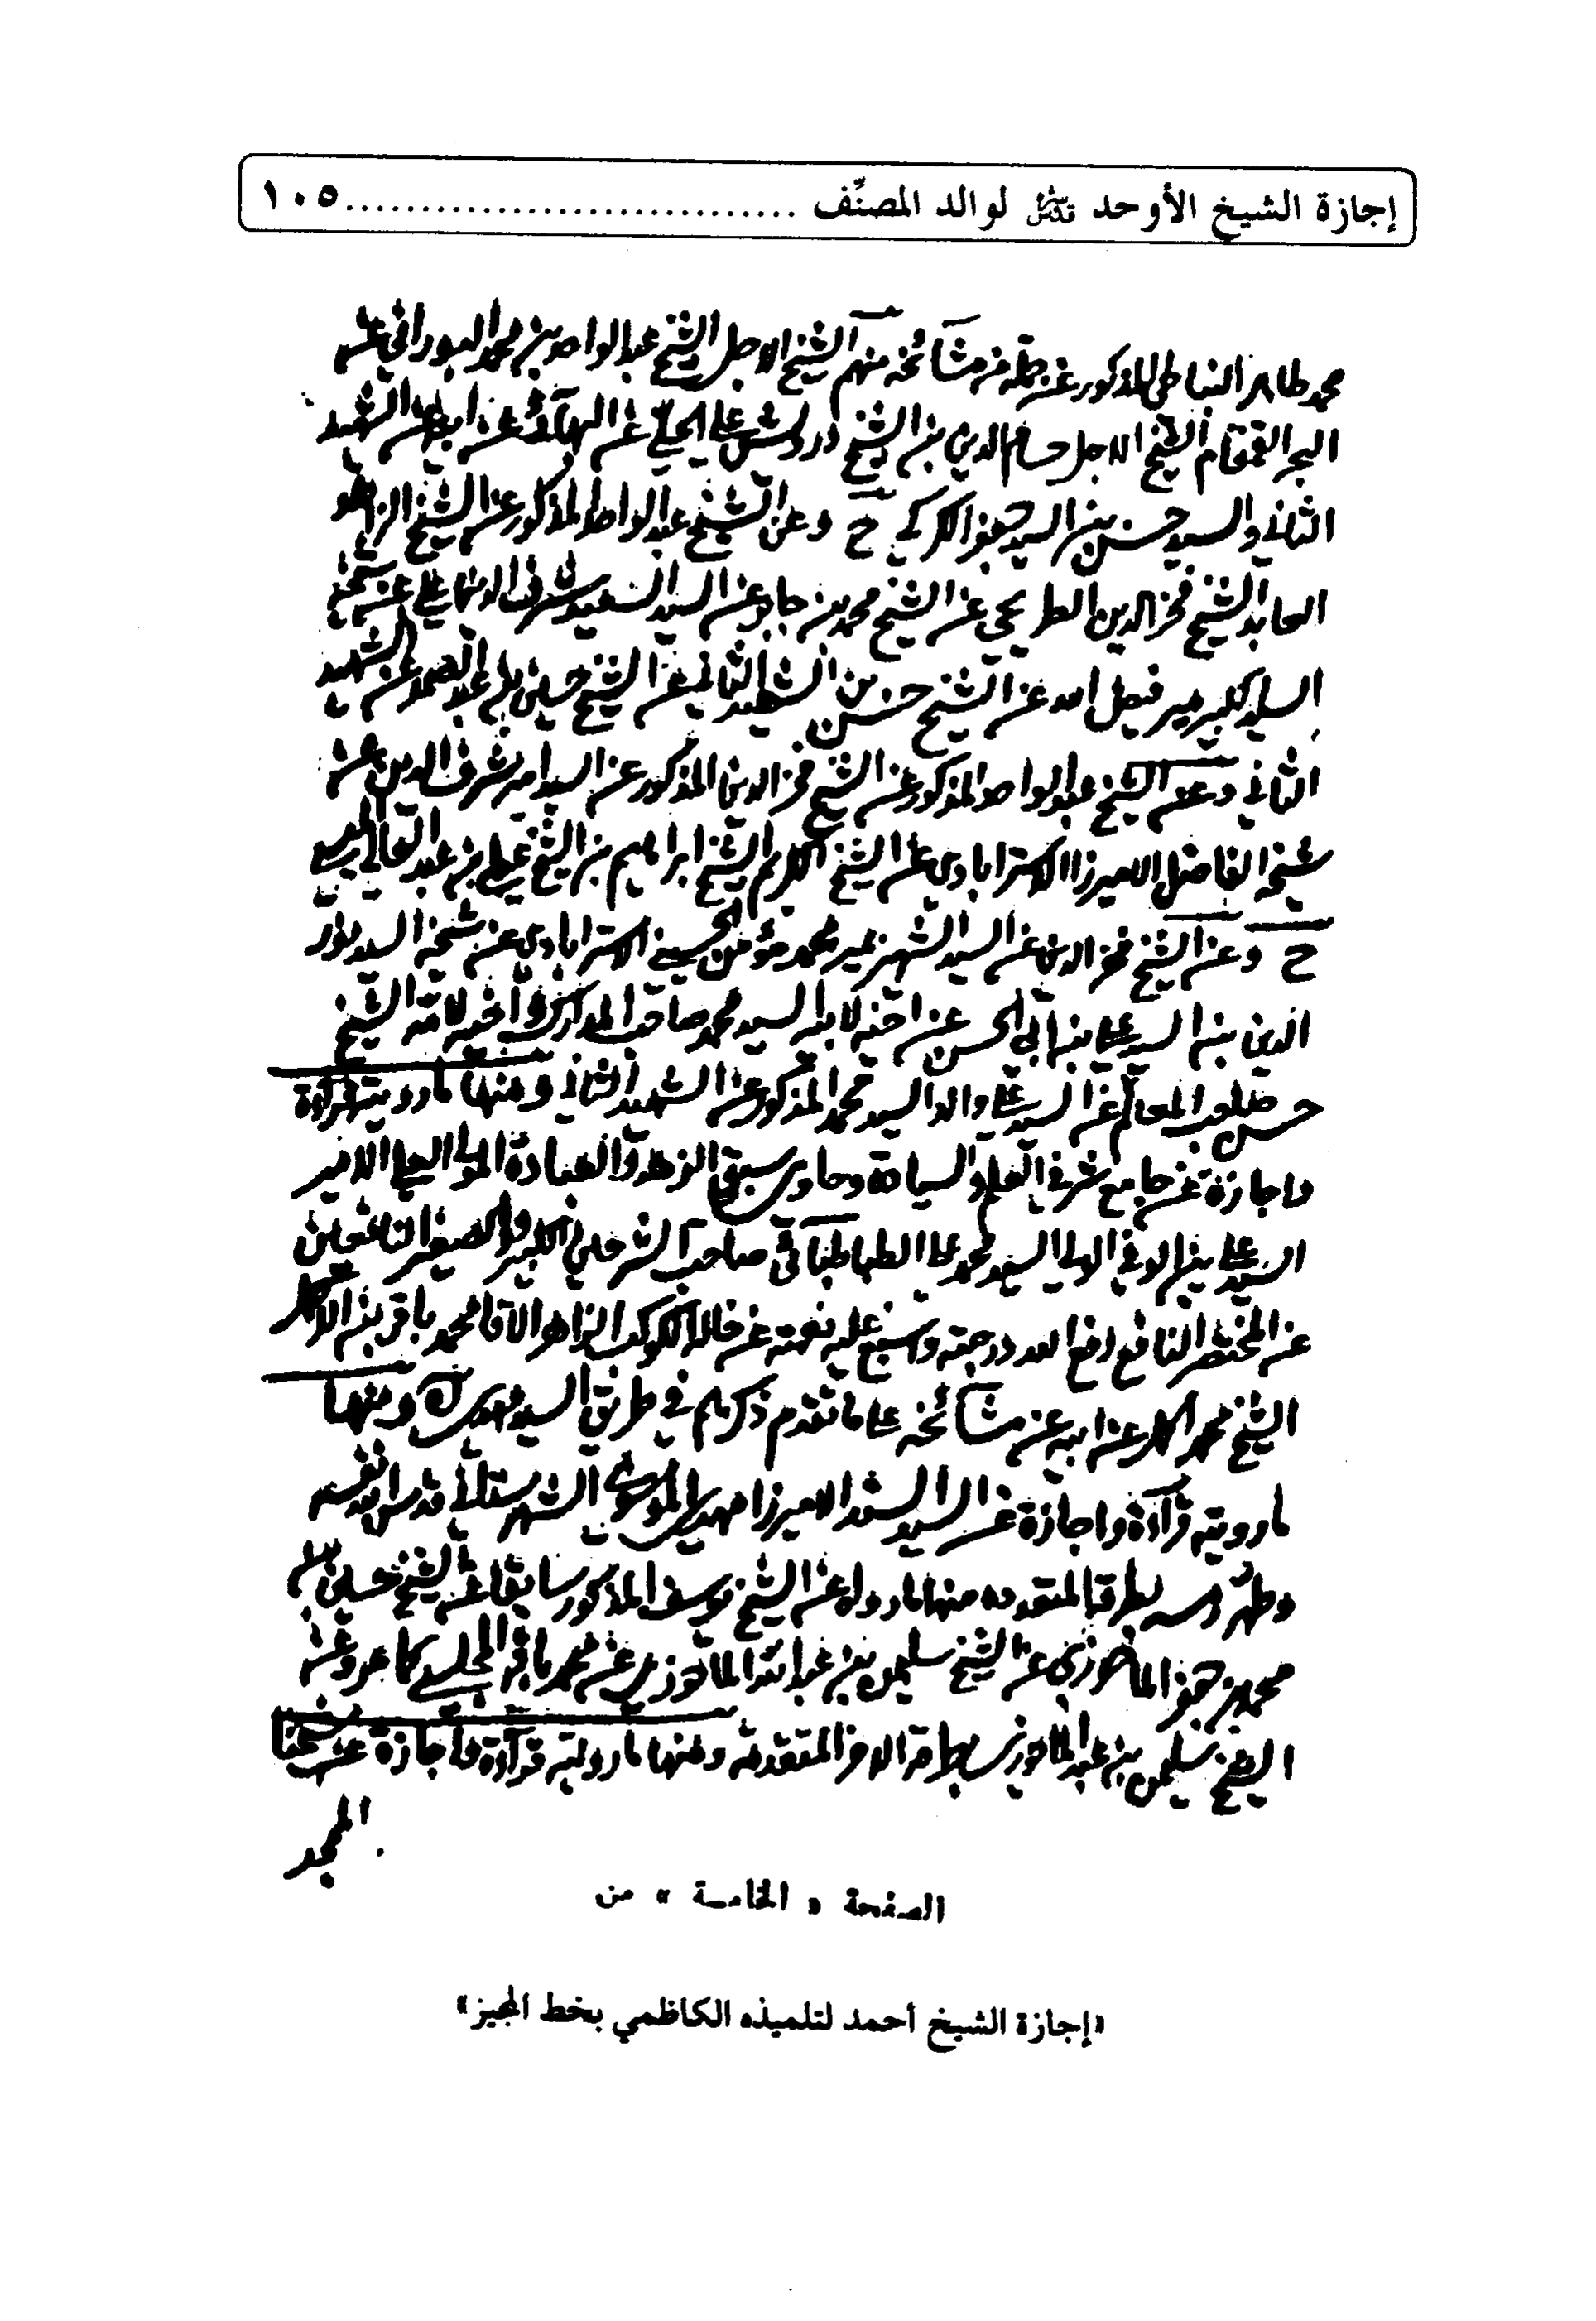 إجازة الشيخ الأوحد قدّس سرّه لوالد المصنِّف .............................. ١٠٥
محمد طاهر النباطي المذكور عن جملة من مشائخه منهم الشيخ الاجل الشيخ عبد الواحد بن محمد البوراني عن
البحر القمقام الشيخ الاجل حسام الدين بن الشيخ درويش علي الحلي عن البهائي عن ابيه عن الشهيد
الثاني والسيد حسن بن السيد جعفر الكركي ح وعن الشيخ عبد الواحد المذكور عن الشيخ الزاهد
العابد الشيخ فخر الدين الطريحي عن الشيخ محمد بن جابر عن السيد السعيد شرف الدين علي عن شيخه
السيد الكبير مير فيض الله عن الشيخ حسن بن الشهيد الثاني عن الشيخ حسين بن عبد الصمد عن الشهيد
الثاني وعن الشيخ عبد الواحد المذكور عن الشيخ فخر الدين المذكور عن السيد امير شرف الدين عن
شيخه الفاضل الاميرزا الاسترابادي عن الشيخ الكريم الشيخ ابراهيم بن الشيخ علي بن عبد العالي الميسي
ح وعن الشيخ فخر الدين عن السيد الشهير مير محمد مؤمن الحسيني الاسترابادي عن شيخه السيد نور
الدين بن السيد علي بن ابي الحسن عن اخيه لابيه السيد محمد صاحب المدارك واخيه لامه الشيخ
حسن صاحب المعالم عن السيد علي والد السيد محمد المذكور عن الشهيد الثاني ومنها مارويته قراءة
واجازة عن جامع شرفي العلم والسيادة وحاوي سبقي الزهد والعبادة المولى العلي الامير
السيد علي بن الوفي الولي السيد محمد علي الطباطبائي صاحب الشرحين الكبير والصغير النافعين
عن المختصر النافع رفع الله درجته واسبغ عليه نعمته عن خاله الكوكب الزاهر الآقا محمد باقر بن الاكمل
الشيخ محمد اكمل عن ابيه عن مشائخه على ما تقدم ذكرهم في طريق السيد مهدي ومنها
مارويته قراءة واجازة عن السيد السند الاميرزا مهدي الموسوي الشهرستاني قدس الله نفسه
وطهر رمسه بطرقه المتعددة منها مارواه عن الشيخ يوسف المذكور سابقا عن الشيخ حسين بن
محمد بن جعفر الماحوزي عن الشيخ سليمن بن عبد الله الماحوزي عن محمد باقر المجلسي كما مر وعن
الشيخ سليمن بن عبد الله الماحوزي بطرقه الاخر المتقدمة ومنها مارويته قراءة واجازة عن شيخنا
الممجد
الصفحة « الخامسة » من
«إجازة الشيخ أحمد لتلميذه الكاظمي بخط المجيز»